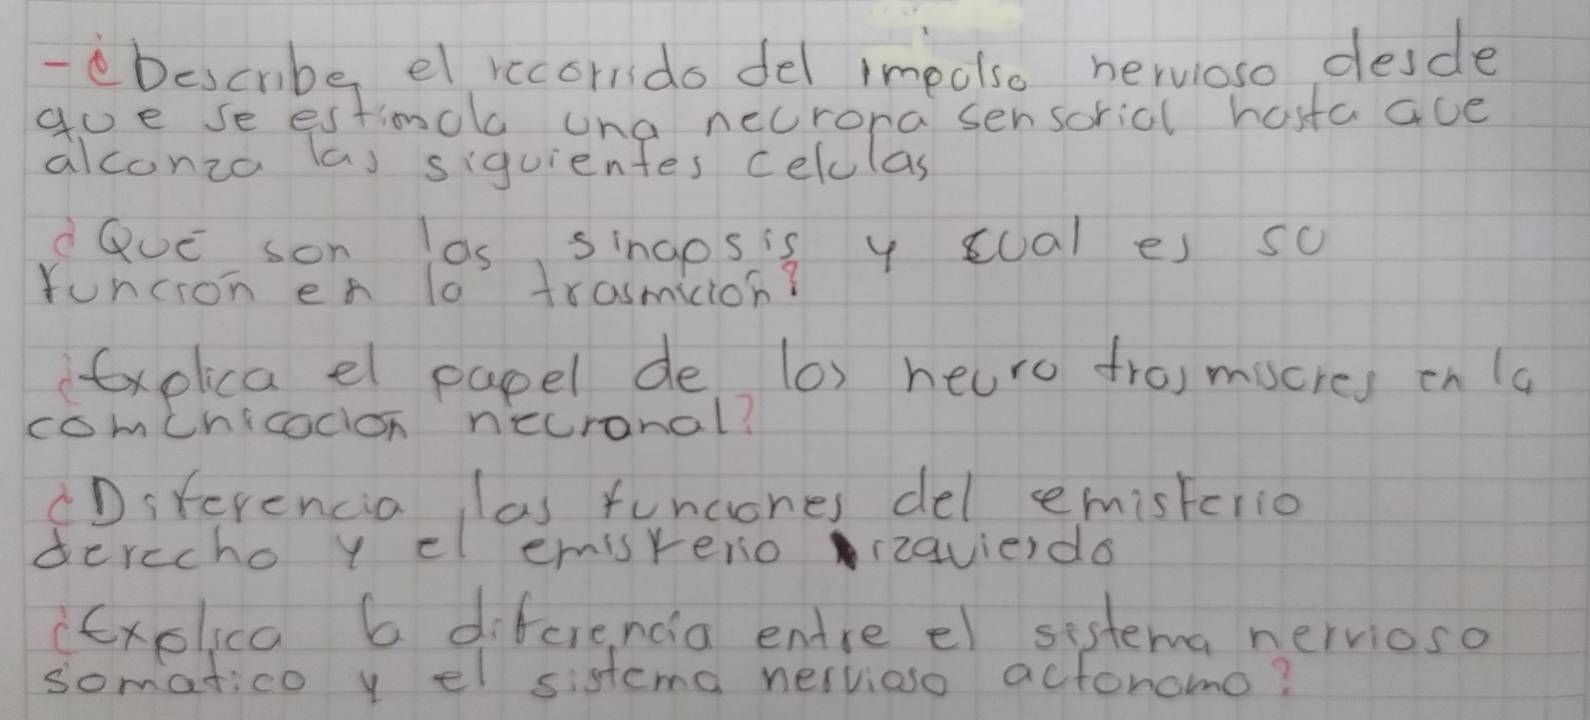 -¿Describe el recorrido del impulso nervioso desde
que se estimula una neurona sensorial hasta que
alcanza las siguientes celulas
¿Qué son las sinapsis y cual es su
función en la trasmición?
¿Explica el papel de los neuro trasmisores en la
comunicación neuronal?
¿Diferencia las funciones del emisferio
derecho y el emisferio izquierdo
¿Explica la diferencia entre el sistema nervioso
somatico y el sistema nervioso autonomo?